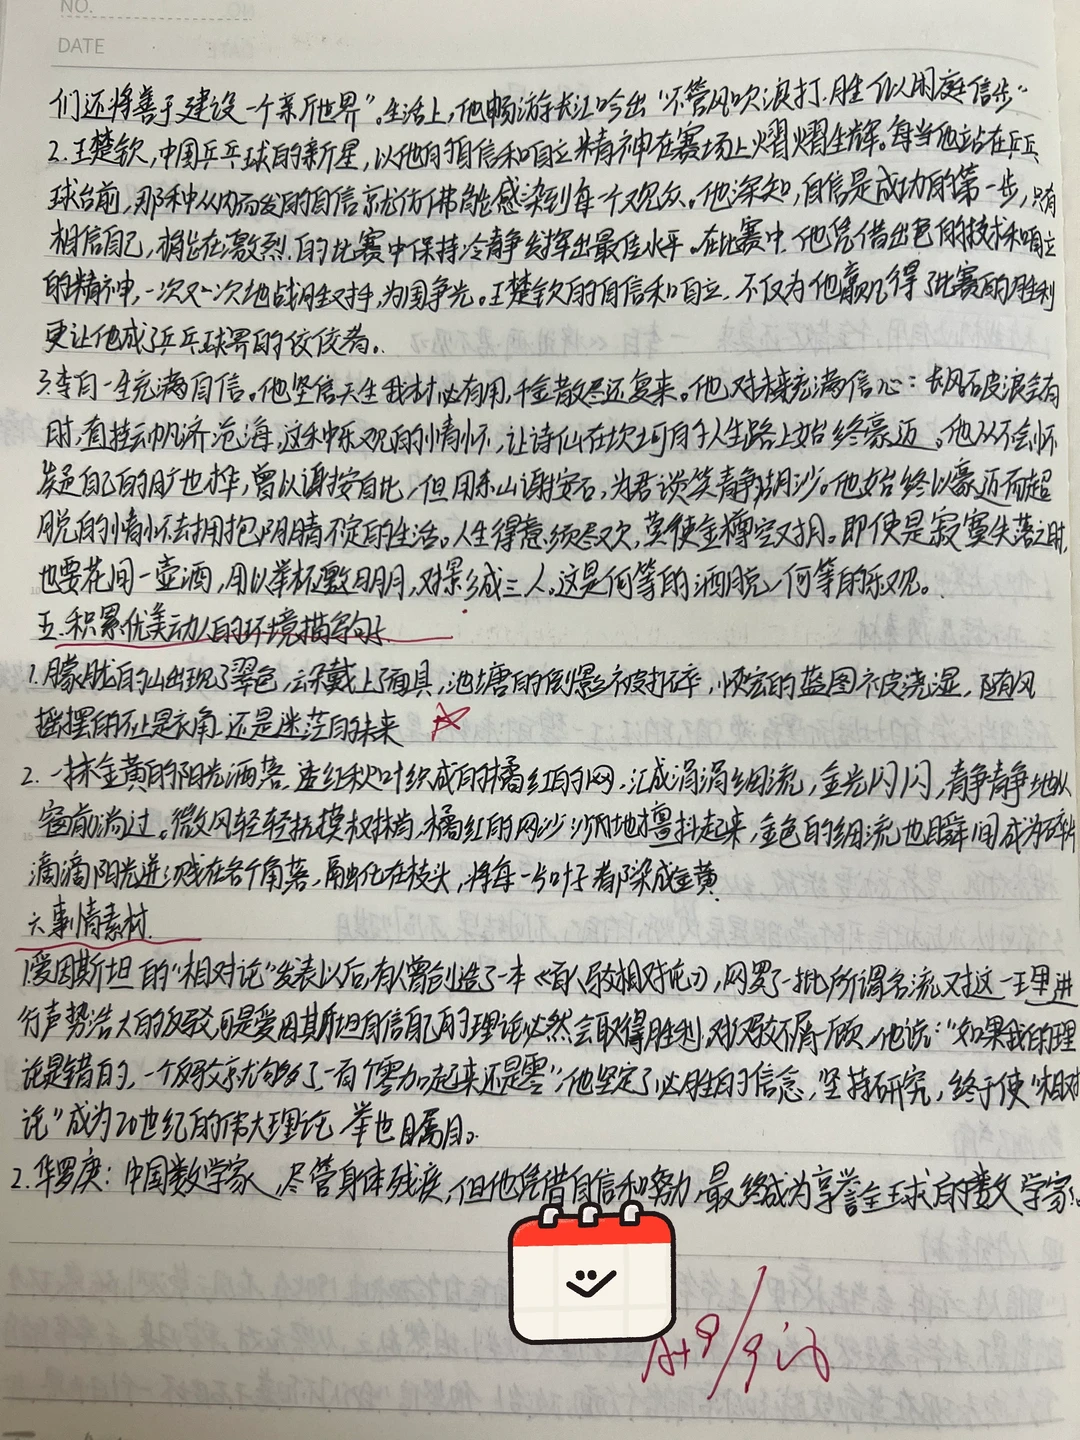 NO.
DATE
们还将善于建设一个新世界”。生活上,他畅游长江吟出“不管风吹浪打,胜似闲庭信步”
2.王楚钦,中国乒乓球的新星,以他的自信和自立精神在赛场上熠熠生辉。每当他站在乒乓
球台前,那种从内而发的自信就仿佛能感染到每一个观众。他深知,自信是成功的第一步,只有
相信自己,才能在激烈的比赛中保持冷静发挥出最佳水平。在比赛中,他凭借出色的技术和自立
的精神,一次又一次地战胜对手,为国争光。王楚钦的自信和自立,不仅为他赢得了比赛的胜利
更让他成了乒乓球界的佼佼者。
3.李白一生充满自信。他坚信天生我材必有用,千金散尽还复来。他对未来充满信心:长风破浪会有
时,直挂云帆济沧海,这种乐观的情怀,让诗仙在坎坷的人生路上始终豪迈。他从不会怀
疑自己的旷世才华,曾以谢安自比,但用东山谢安石,为君谈笑静胡沙。他始终以豪迈而超
脱的情怀去拥抱阴晴不定的生活。人生得意须尽欢,莫使金樽空对月。即使是寂寞失落之时,
也要花间一壶酒,用以举杯邀明月,对影成三人。这是何等的洒脱,何等的乐观。
五.积累优美动人的环境描写句子
1.朦胧的山出现了翠色,云朵戴上了面具,池塘的倒影被打碎,恢宏的蓝图被浇湿,随风
摇摆的不止是衣角,还是迷茫的未来
2.一抹金黄的阳光洒落,透红秋叶织成的橘红的网,汇成涓涓细流,金光闪闪,静静地从
窗前淌过。微风轻轻抚摸枝梢,橘红的网沙沙地抖起来,金色的细流也瞬间成为碎片
滴滴阳光迸溅在各个角落,融化在枝头,将每一片叶子都染成金黄
六.事情素材.
1.爱因斯坦的“相对论”发表以后,有人曾创造了一本《百人驳相对论》,网罗了一批所谓名流对这一理论进
行声势浩大的反驳,可是爱因斯坦自信自己的理论必然会取得胜利,对反驳不屑一顾,他说:“如果我的理
论是错的,一个反驳就够了,一百个零加起来还是零”,他坚定了必胜的信念,坚持研究,终于使“相对
论”成为20世纪的伟大理论,举世瞩目。
2.华罗庚:中国数学家,尽管身体残疾,但他凭借自信和努力,最终成为享誉全球的数学家。
A+ 9/9